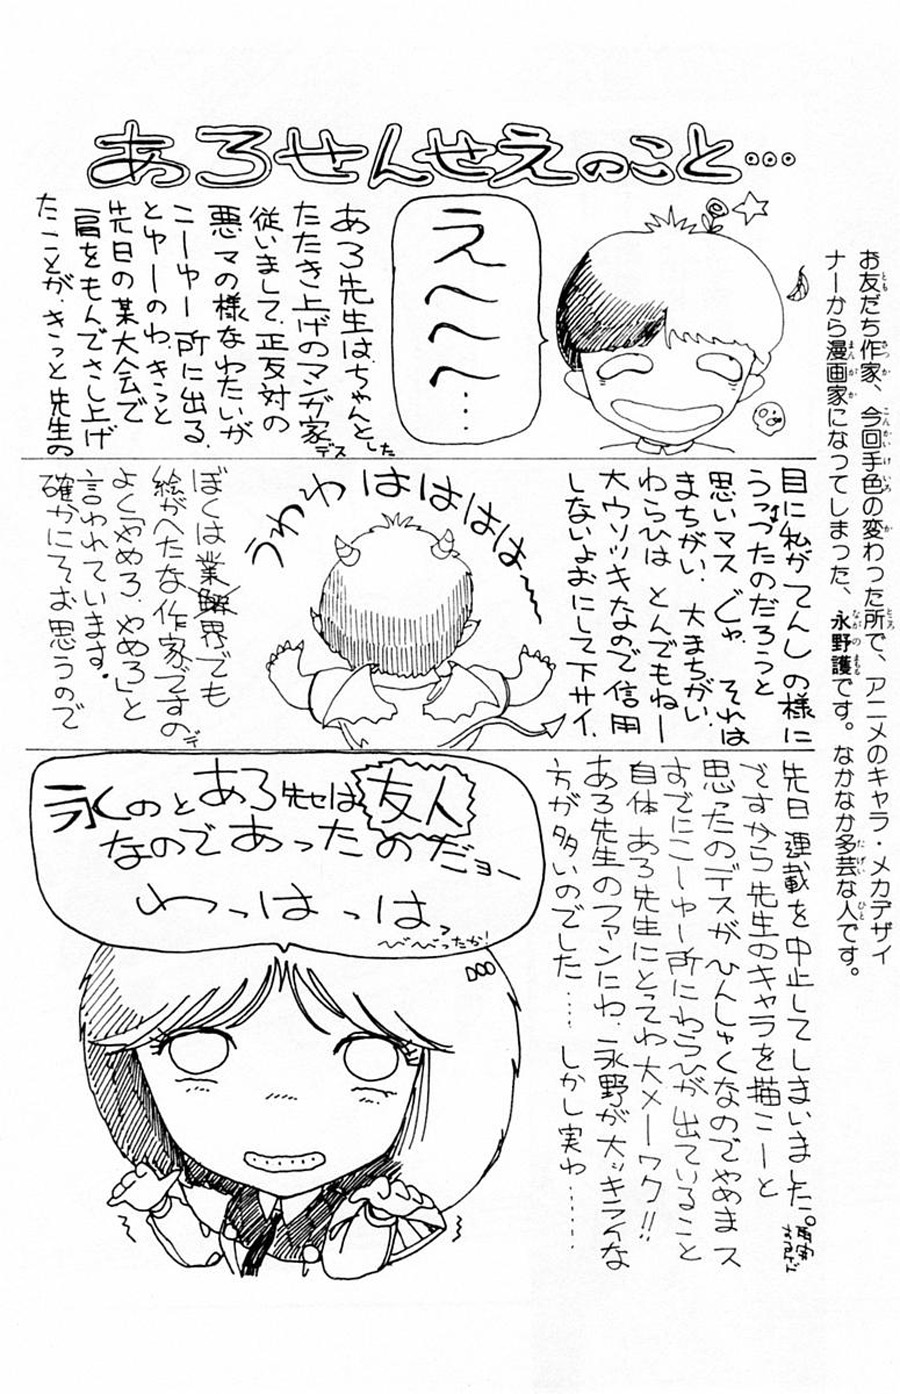 お友だち作家、今回手色の変わった所で、アニメのキャラ・メカデザイ
ナーから漫画家になってしまった、永野護です。なかなか多芸な人です。
あろせんせえのこと…
え〜〜〜……
あろ先生は、ちゃんとした
たたき上げのマンガ家デス
従いまして、正反対の
悪マの様なわたいが
こーゆー所に出る、
とゆーのわ、きっと
先日の某大会で
肩をもんでさし上げ
たことが、きっと先生の
目に私がてんしの様に
うつったのだろうと
思いマス じゃ、それは
まちがい、大まちがい、
わらひは とんでもねー
大ウソツキなので信用
しないよおにして下サイ、
うわわはははは〜
ぼくは業界でも
絵がへたな作家ですので
よく「やめろ、やめろ」と
言われています。
確かにそお思うので
先日 連載を中止してしまいました。
ですから先生のキャラを描こーと
思ったのデスが ひんしゅくなのでやめまス
すでにこーゆー所にわらひが 出ていること
自体 あろ先生にとってわ大メーワク!!
あろ先生のファンにわ、永野が大ッキライな
方が多いのでした……しかし実わ………
永のとあろ先セは友人
なのであったのだョー
わっはっは